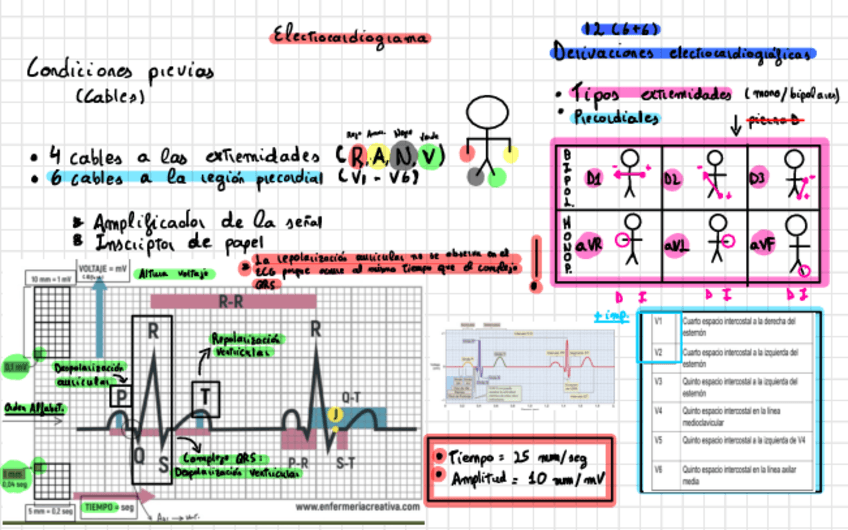 Electrocardiograma
12 (6+6)
Derivaciones electrocardiográficas
Condiciones previas
(Cables)
• Tipos extremidades (mono/bipolares)
• Precordiales
pierna D
Rojo Amar. Negro Verde
• 4 cables a las extremidades (R, A, N, V)
• 6 cables a la región precordial (V1 - V6)
Amplificador de la señal
Inscriptor de papel
BIPOL.
D1
D2
D3
MONOP.
aVR
aVL
aVF
D I
D I
D I
La repolarización auricular no se observa en el
ECG porque ocurre al mismo tiempo que el complejo
QRS
!
VOLTAJE = mV
Altura voltaje
10 mm = 1 mV
R-R
R
R
Repolarización
ventricular
0,1 mV
Despolarización
auricular
P
T
Q-T
J
Orden Alfabet.
Q
S
Complejo QRS:
Despolarización ventricular
P-R
S-T
1 mm
0,04 seg
5 mm = 0,2 seg
TIEMPO = seg
www.enfermeriacreativa.com
• Tiempo = 25 mm/seg
• Amplitud = 10 mm/mV
+ imp.
V1 Cuarto espacio intercostal a la derecha del
esternón
V2 Cuarto espacio intercostal a la izquierda del
esternón
V3 Quinto espacio intercostal a la izquierda del
esternón
V4 Quinto espacio intercostal en la línea
medioclavicular
V5 Quinto espacio intercostal a la izquierda de V4
V6 Quinto espacio intercostal en la línea axilar
media